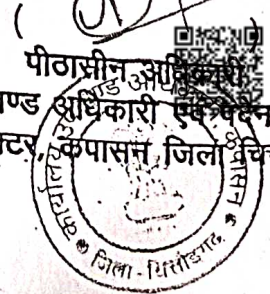 (
पीठासीन अधिकारी
ण्ड अधिकारी एवं पदेन
क्टर, कपासन जिला चि
कार्यालय उ
कपासन
जिला - चित्तौड़गढ़